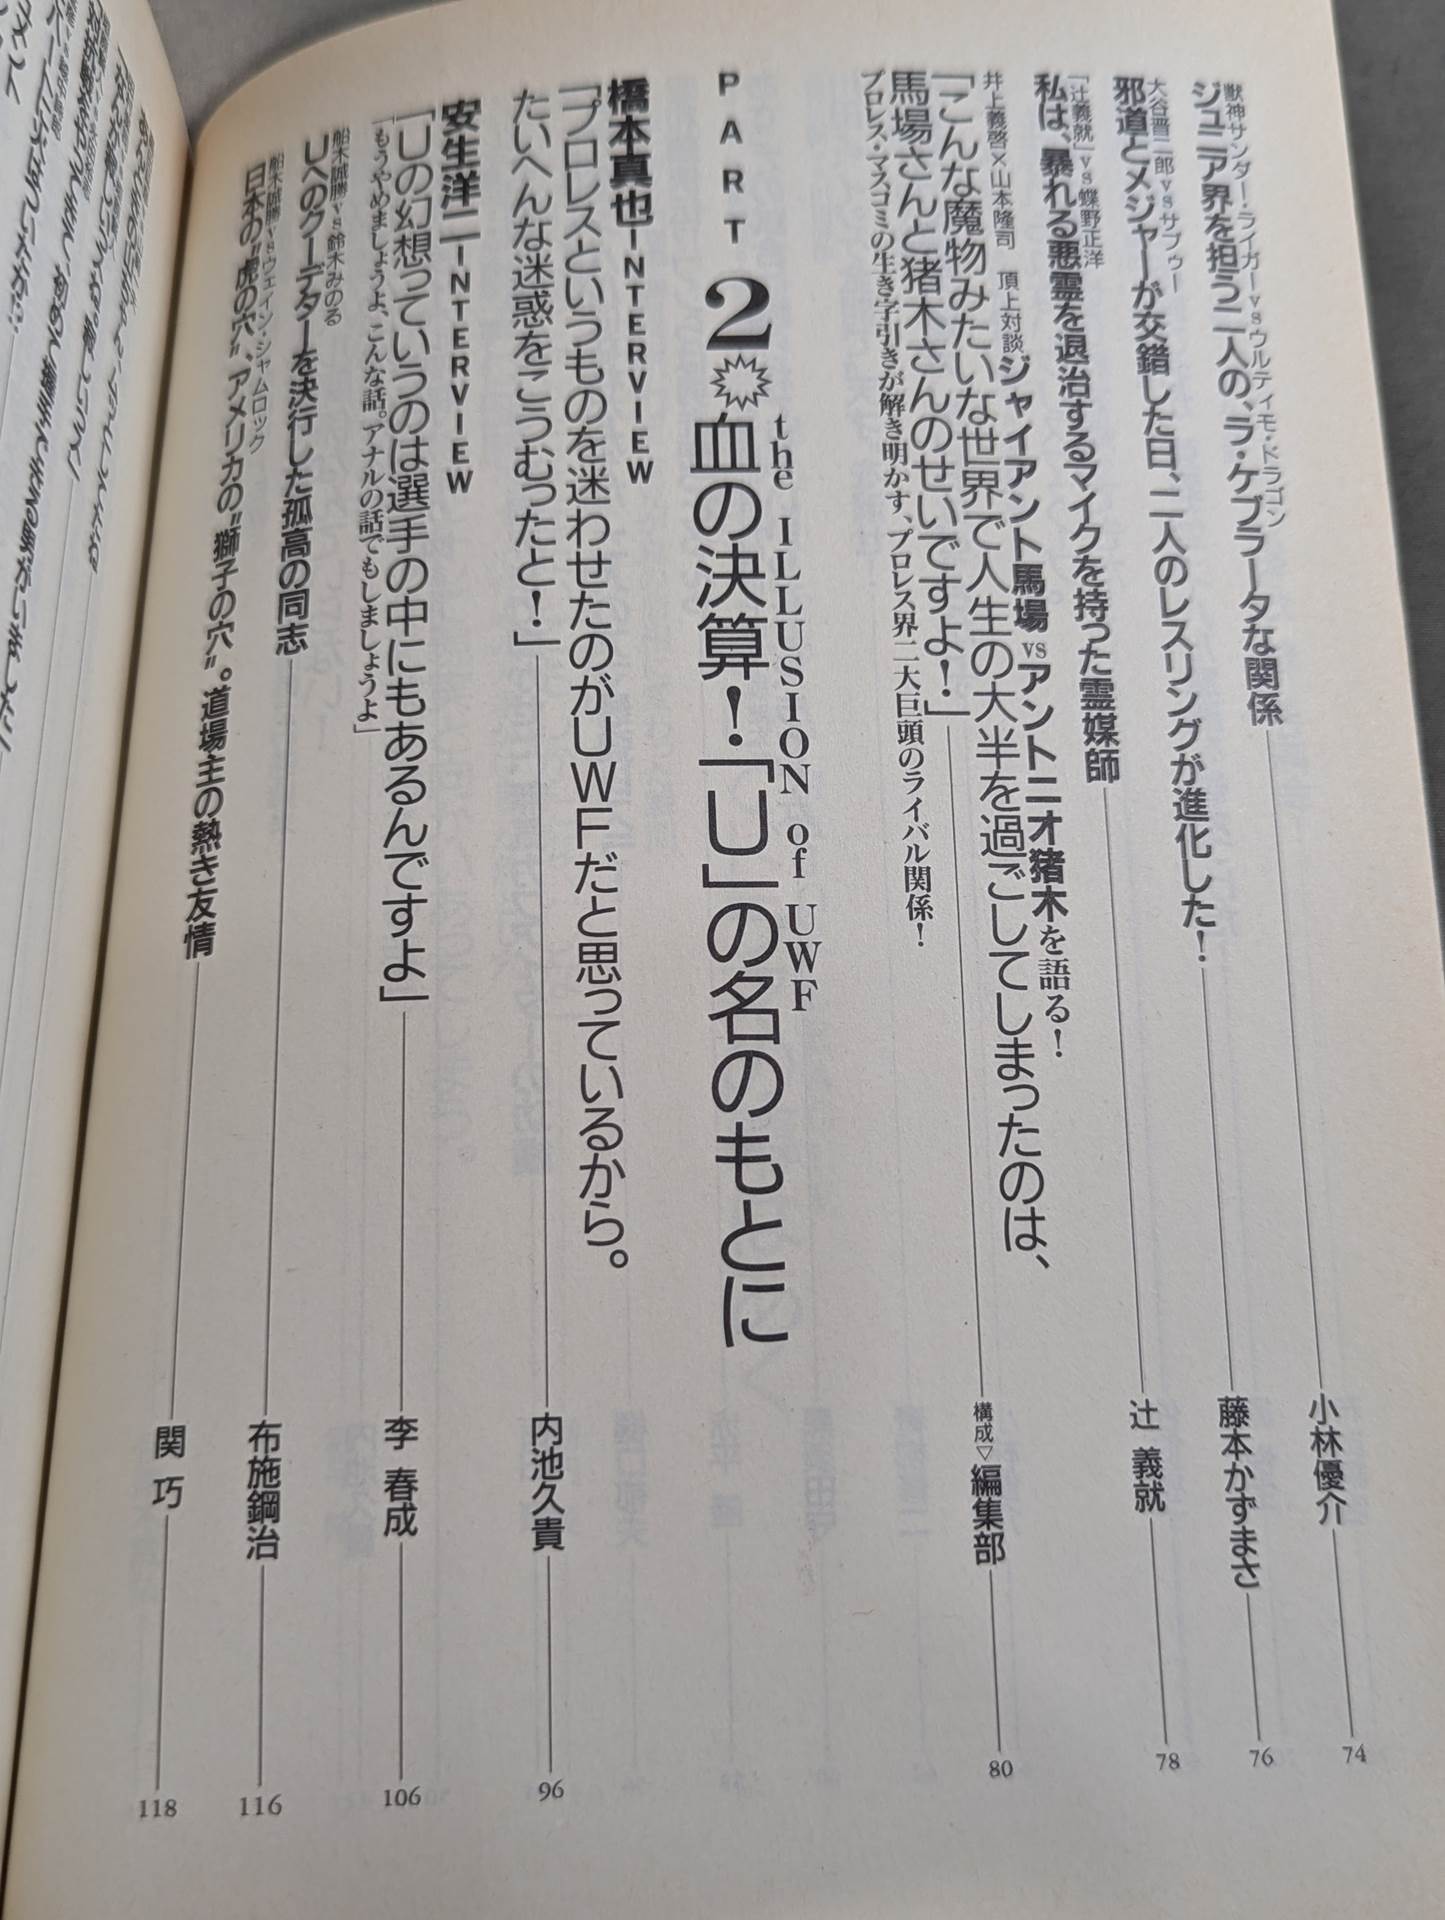 獣神サンダー・ライガーvsウルティモ・ドラゴン
ジュニア界を担う二人の、ラ・ケブラータな関係
小林優介
74
大谷晋二郎vsサブゥー
邪道とメジャーが交錯した日、二人のレスリングが進化した！
藤本かずまさ
76
「辻義就」vs蝶野正洋
私は、暴れる悪霊を退治するマイクを持った霊媒師
辻 義就
78
井上義啓×山本隆司 頂上対談 ジャイアント馬場vsアントニオ猪木を語る！
「こんな魔物みたいな世界で人生の大半を過ごしてしまったのは、
馬場さんと猪木さんのせいですよ！」
プロレス・マスコミの生き字引きが解き明かす、プロレス界二大巨頭のライバル関係！
構成▽編集部
80
PART 2
the ILLUSION of UWF
血の決算！「U」の名のもとに
橋本真也 INTERVIEW
「プロレスというものを迷わせたのがUWFだと思っているから。
たいへんな迷惑をこうむったと！」
内池久貴
96
安生洋二 INTERVIEW
「Uの幻想っていうのは選手の中にもあるんですよ」
「もうやめましょうよ、こんな話。アナルの話でもしましょうよ」
李 春成
106
船木誠勝vs鈴木みのる
Uへのクーデターを決行した孤高の同志
布施鋼治
116
船木誠勝vsウェイン・シャムロック
日本の“虎の穴”、アメリカの“獅子の穴”。道場主の熱き友情
関 巧
118